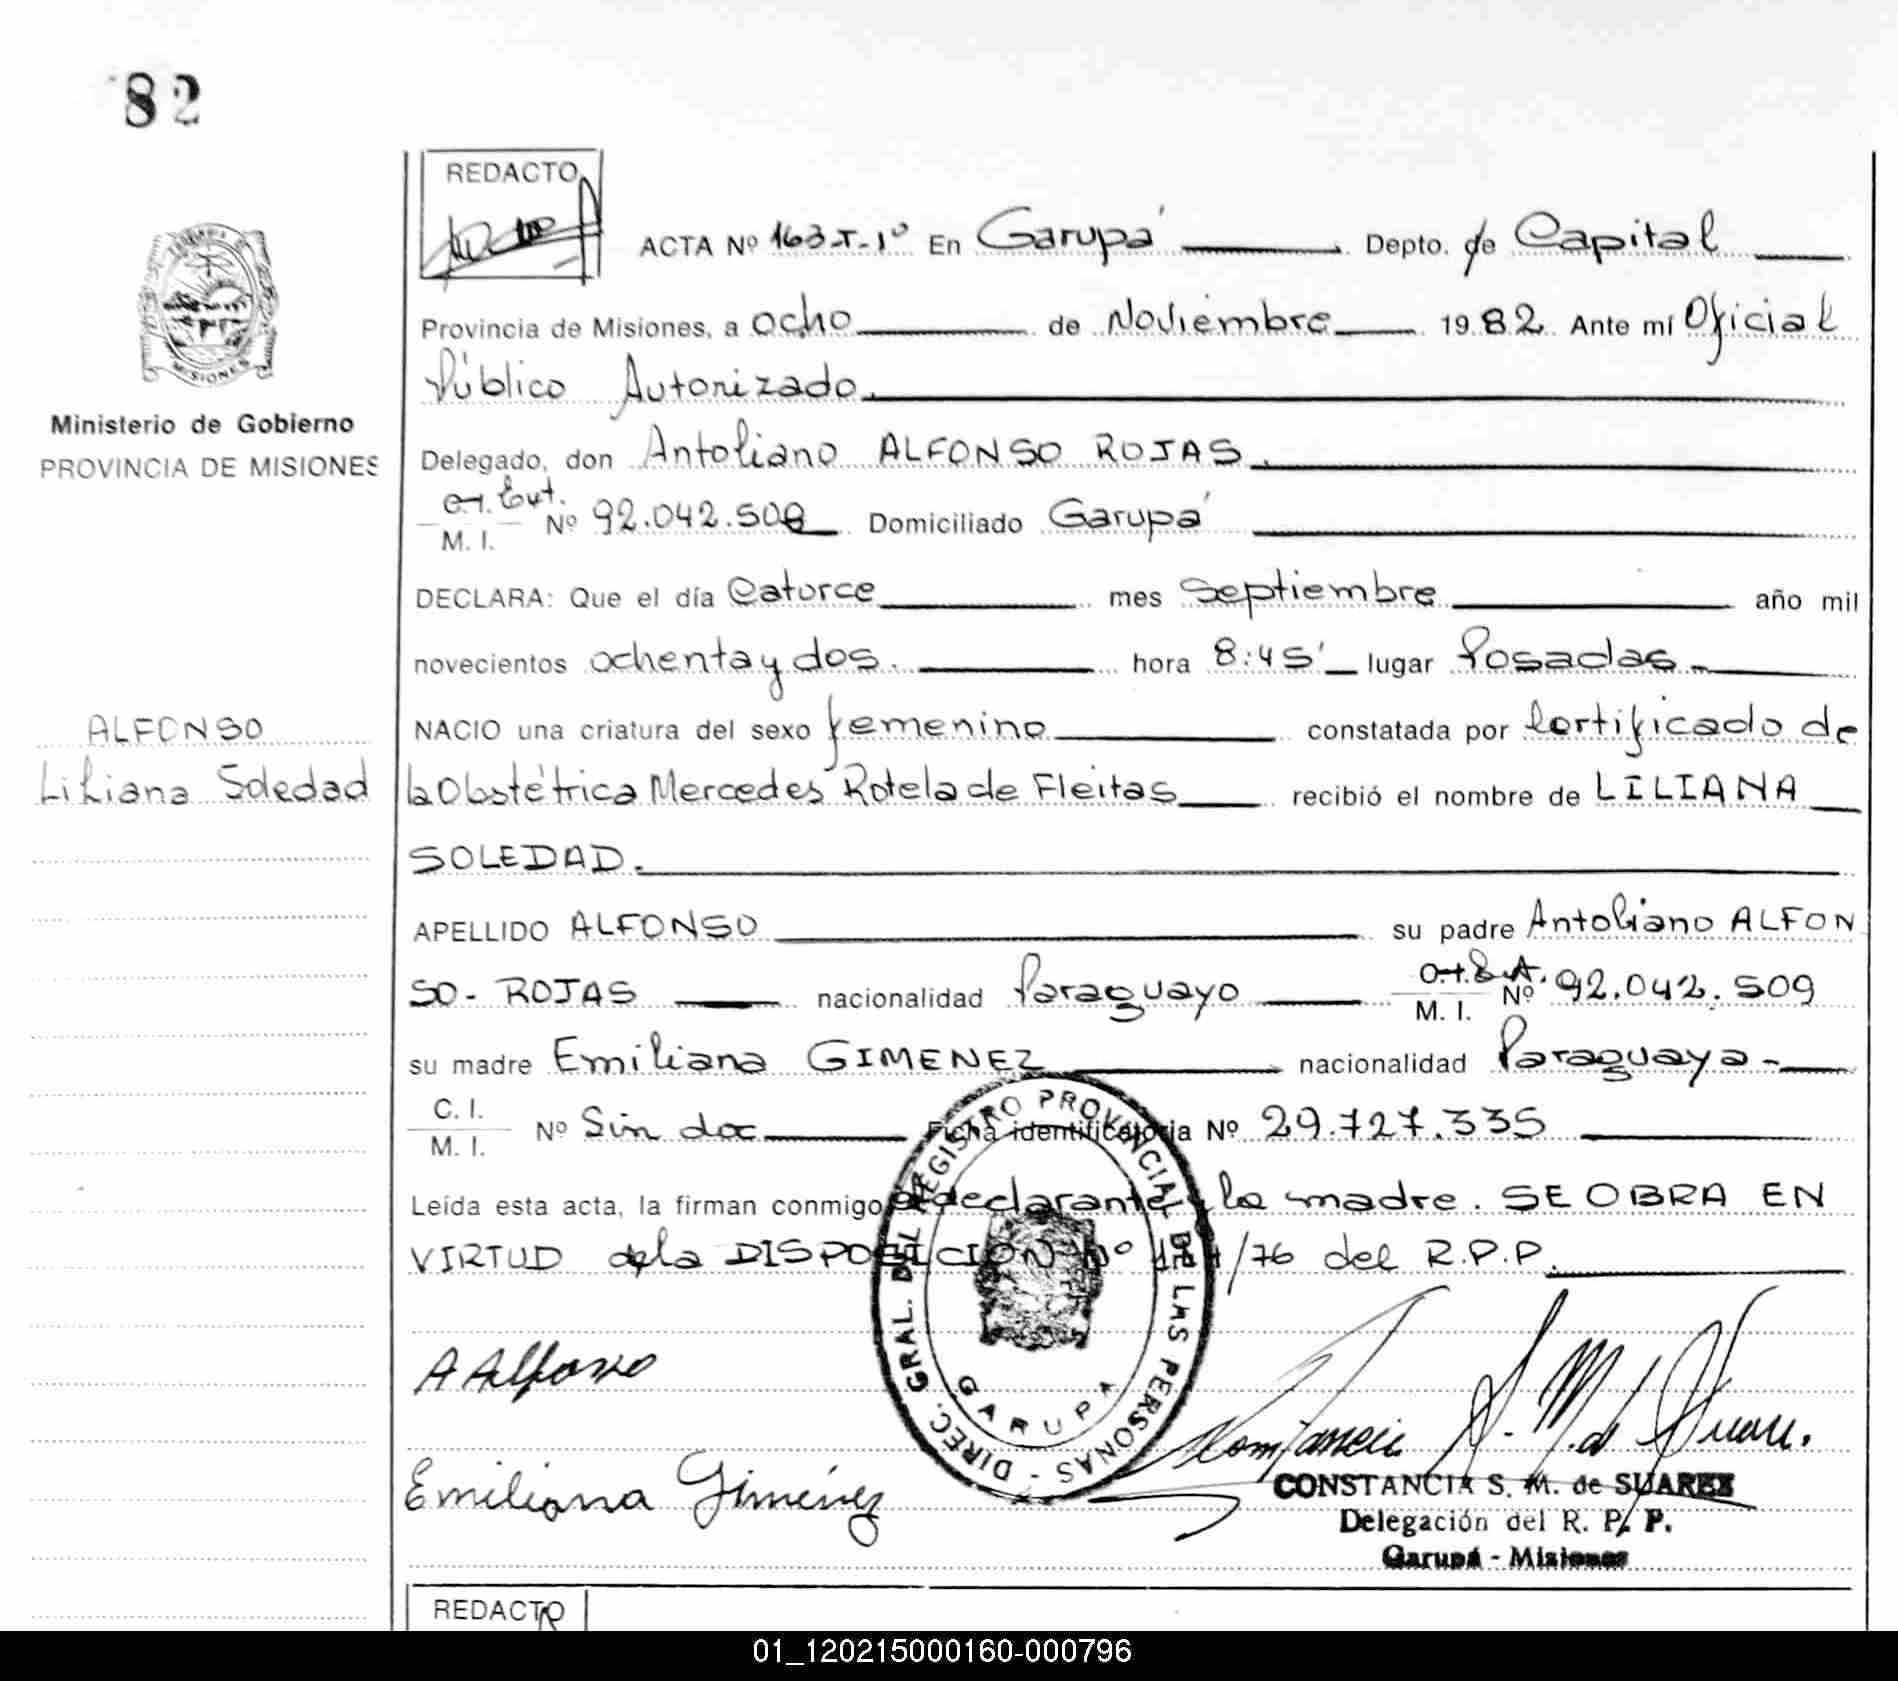 82
REDACTO
ACTA Nº 163-T-1º En Garupá Depto. de Capital
Provincia de Misiones, a ocho de Noviembre 1982 Ante mí Oficial
Público Autorizado.
Delegado, don Antoliano ALFONSO ROJAS.
M. I. Nº 92.042.509 Domiciliado Garupá
Ministerio de Gobierno
PROVINCIA DE MISIONES
DECLARA: Que el día Catorce mes Septiembre año mil
novecientos ochenta y dos. hora 8:45' lugar Posadas.
ALFONSO
Liliana Soledad
NACIO una criatura del sexo femenino constatada por Certificado de
la Obstétrica Mercedes Rotela de Fleitas recibió el nombre de LILIANA
SOLEDAD.
APELLIDO ALFONSO su padre Antoliano ALFON
SO- ROJAS nacionalidad Paraguayo M. I. Nº 92.042.509
su madre Emiliana GIMENEZ nacionalidad Paraguaya-
C. I.
M. I. Nº Sin doc Ficha identificatoria Nº 29.727.335
Leída esta acta, la firman conmigo el declarante y la madre. SE OBRA EN
VIRTUD de la DISPOSICION Nº /76 del R.P.P.
DIREC. GRAL. DEL REGISTRO PROVINCIAL DE LAS PERSONAS -
GARUPA
A Alfonso
Emiliana Giménez
CONSTANCIA S. M. de SUAREZ
Delegación del R. P. P.
Garupá - Misiones
REDACTO
01_120215000160-000796